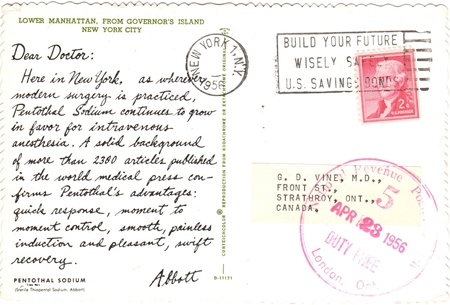 LOWER MANHATTAN, FROM GOVERNOR'S ISLAND
NEW YORK CITY
Dear Doctor:
Here in New York, as wherever
modern surgery is practiced,
Pentothal Sodium continues to grow
in favor for intravenous
anesthesia. A solid background
of more than 2300 articles published
in the world medical press con-
firms Pentothal's advantages:
quick response, moment to
moment control, smooth, painless
induction and pleasant, swift
recovery.
Abbott
PENTOTHAL SODIUM
(Sterile Thiopental Sodium, Abbott)
S-11171
NEW YORK 1, N.Y.
1956
BUILD YOUR FUTURE
WISELY SAFELY
U.S. SAVINGS BONDS
2¢
G. D. VINE, M.D.,
FRONT ST.,
STRATHROY, ONT.,
CANADA.
5
APR 23 1956
DUTY FREE
London, Ont.